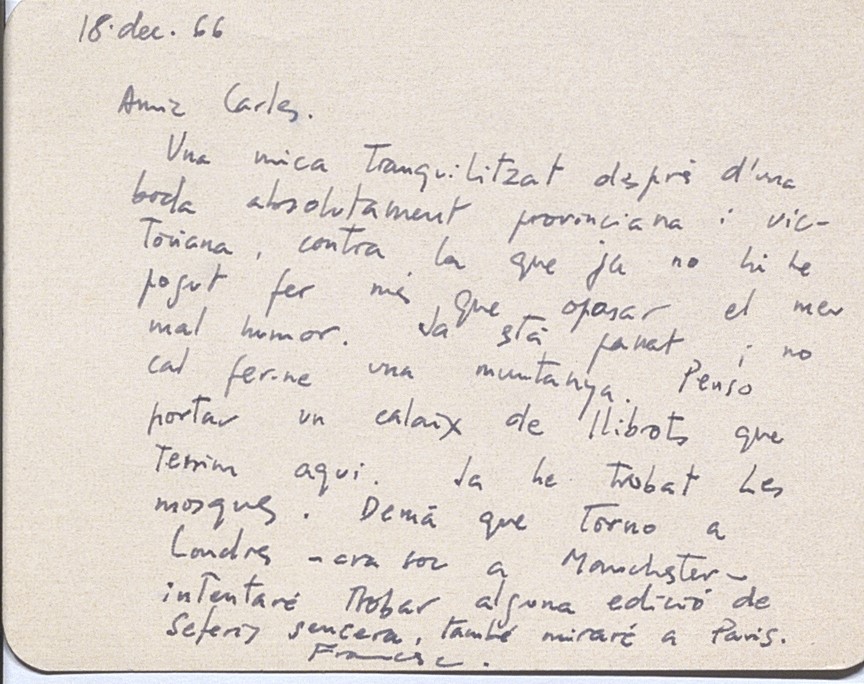 18. dec. 66
Amic Carles.
Una mica tranquilitzat després d'una
boda absolutament provinciana i vic-
toriana, contra la que ja no hi he
pogut fer més que oposar el meu
mal humor. Ja està passat i no
cal fer-ne una muntanya. Penso
portar un calaix de llibrots que
tenim aquí. Ja he trobat Les
mosques. Demà que torno a
Londres - ara soc a Manchester -
intentaré trobar alguna edició de
Seferis sencera, també miraré a Paris.
Francesc.